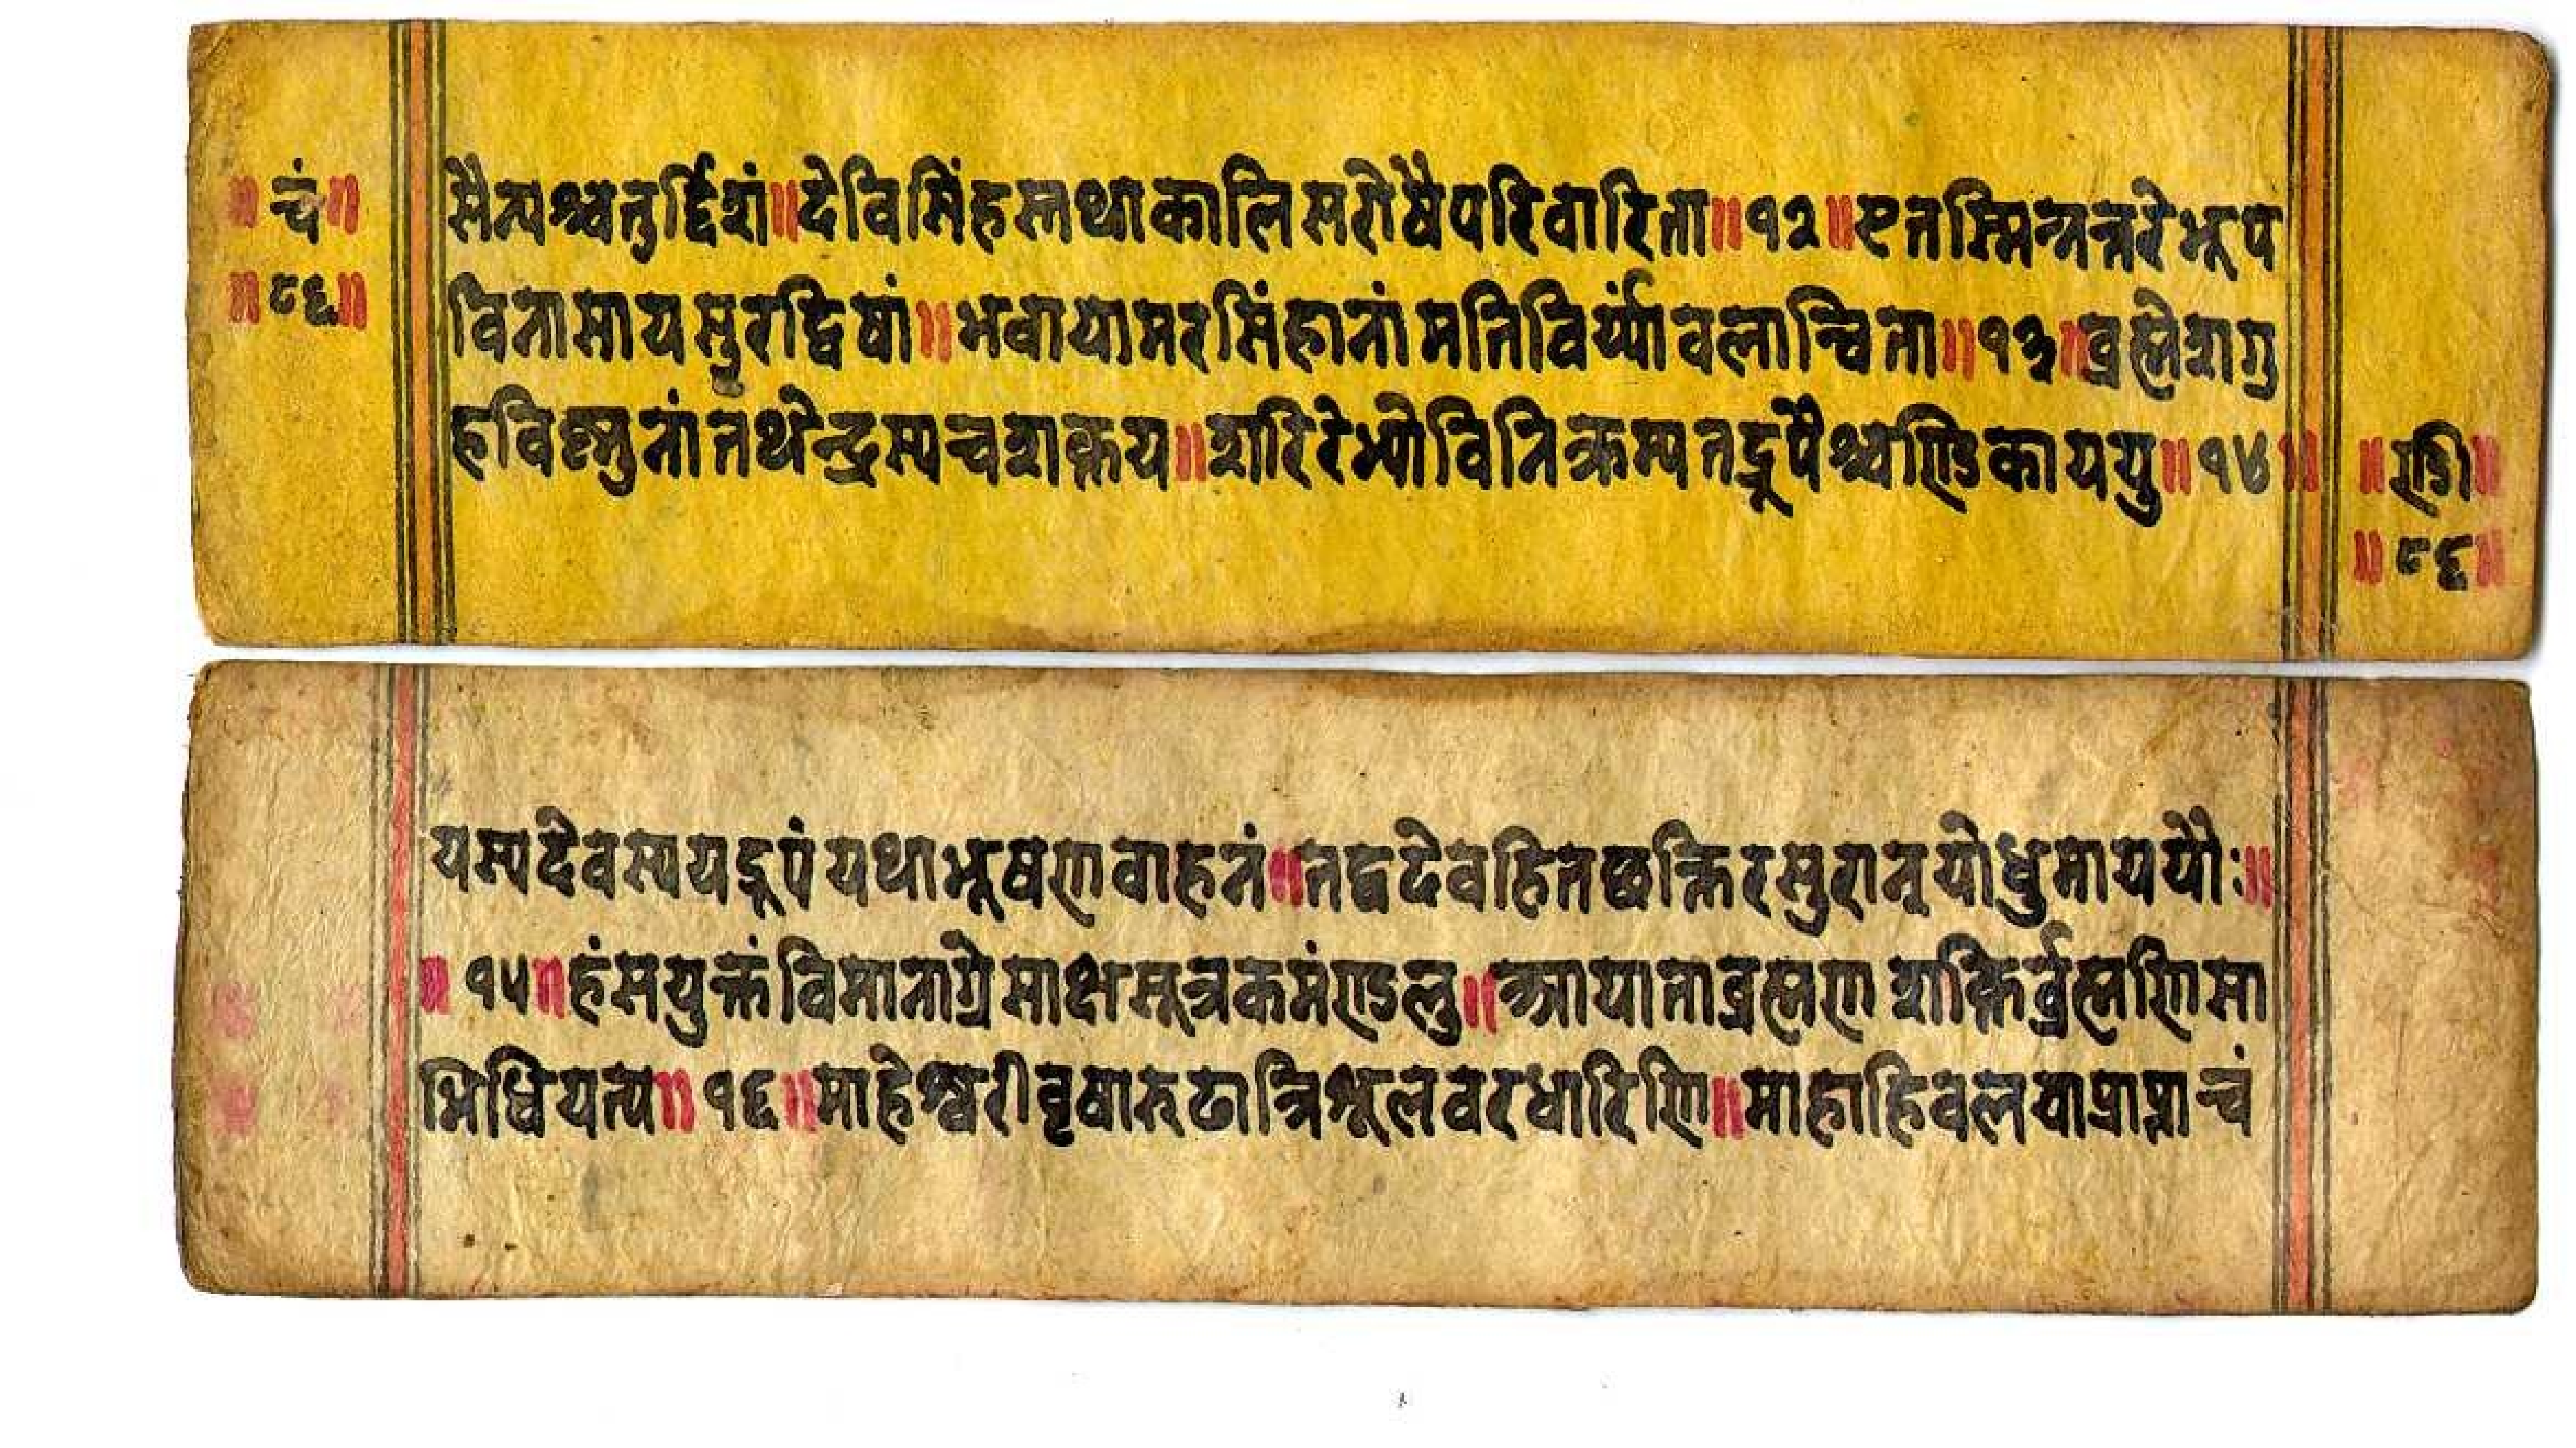 ॥ चं॥
॥८६॥
सैन्यश्चतुर्द्दिशं॥देविसिंहस्तथाकालिसरोषैपरिवारिता॥१२॥एतस्मिन्नन्तरेभूप
विनासायसुरद्विषां॥भवायामरसिंहानांमतिविर्य्यावलान्विता॥१३॥व्रह्मेशगु
हविष्णुनांतथेन्द्रस्यचशक्तय॥शरिरेभ्योविनिक्रम्यतद्रूपैश्चण्डिकाययु॥१४॥
॥ण्डी॥
॥८६॥
यस्यदेवस्ययद्रूपंयथाभूषणवाहनं॥तद्वदेवहितछक्तिरसुरान्योधुमाययौः॥
॥१५॥हंसयुक्तंविमानाग्रेसाक्षसूत्रकमंण्डलु॥आयाताव्रह्मणशक्तिर्व्रह्मणिसा
भिधियत्य॥१६॥माहेश्वरीवृषारुढात्रिश्रूलवरधारिणि॥माहाहिवलयाप्राप्ताचं